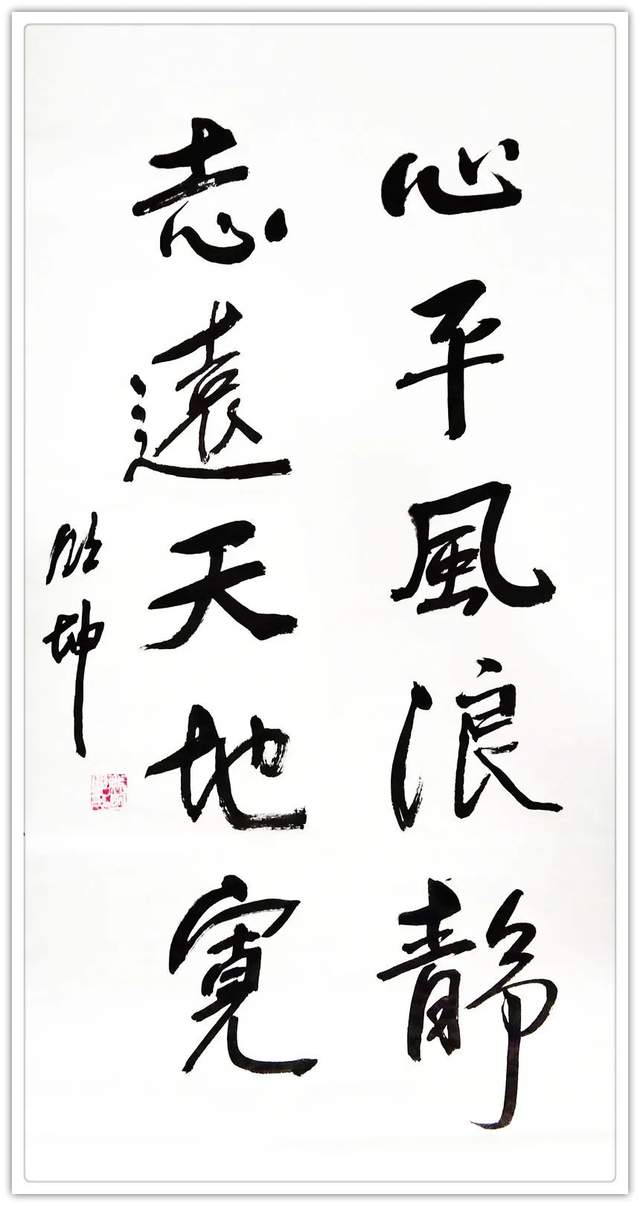 心平風浪静
志遠天地寬
坤